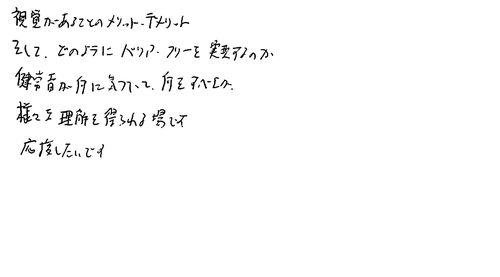 視覚があることのメリット・デメリット
そして、どのようにバリア・フリーを実現するのか
健常者が何に気づいて、何をすべきか
様々な理解を得られる場です
応援したいです